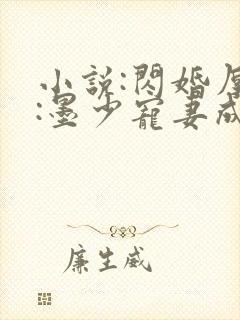 小說:閃婚厚
:墨少寵妻成
廉生威